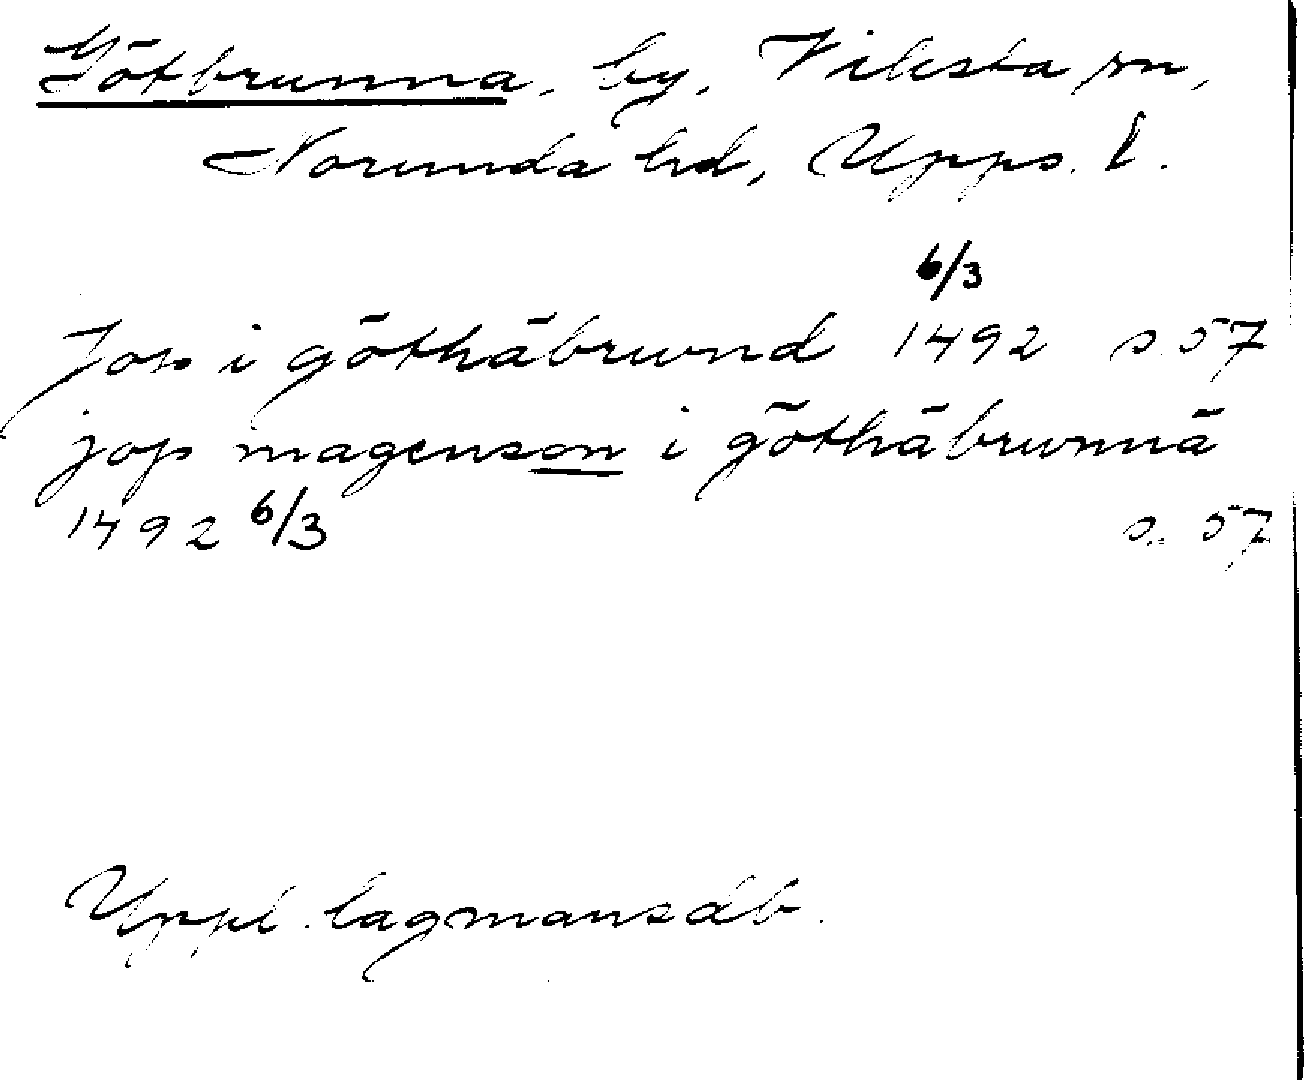 Götbrunna, by, Viksta sn,
Norunda hd, Upps. l.
6/3
Jop i göthäbrwnd 1492 s. 57
jop magenson i göthäbrwnnä
1492 6/3 s. 57
Uppl. lagmansdb.